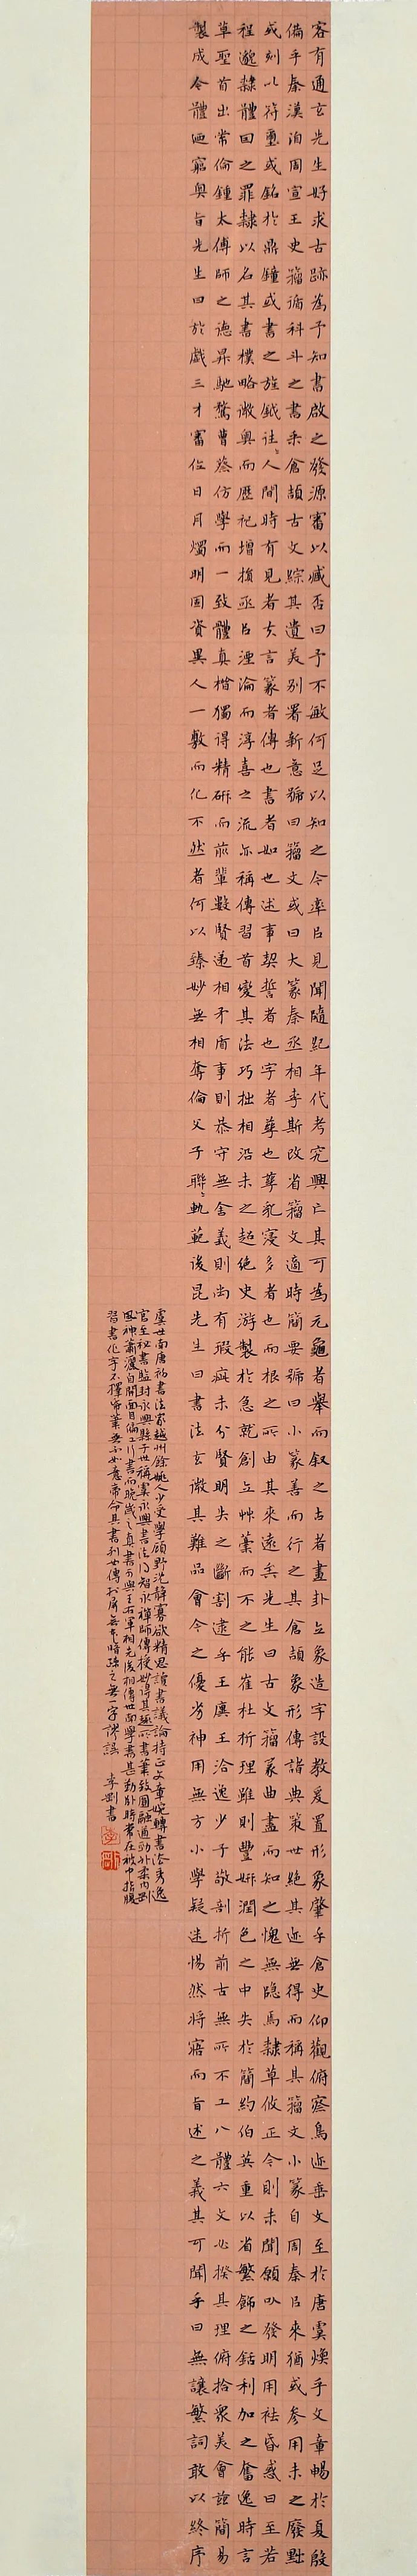 客有通玄先生好求古跡為予知書啟之發源審以臧否曰予不敏何足以知之今率㠯見聞隨紀年代考究興亡其可為元龜者舉而叙之古者畫卦立象造字設教爰置形象肇乎倉史仰觀俯察鳥迹垂文至於唐虞煥乎文章暢於夏殷
備乎秦漢洎周宣王史籀循科斗之書采倉頡古文綜其遺美別署新意號曰籀文或曰大篆秦丞相李斯改省籀文適時簡要號曰小篆善而行之其倉頡象形傳諸典策世絕其迹無得而稱其籀文小篆自周秦㠯來猶或參用未之廢黜
或刻以符璽或銘於鼎鐘或書之旌鉞往〻人間時有見者夫言篆者傳也書者如也述事契誓者也字者孳也孳乳寖多者也而根之所由其來遠矣先生曰古文籀篆曲盡而知之愧無隱焉隸草攸正今則未聞願以發明用祛昏惑曰至若
程邈隸體因之罪隸以名其書樸略微奧而歷祀增損亟㠯湮淪而淳喜之流亦稱傳習首變其法巧拙相沿未之超絕史游製於急就創立艸藁而不之能崔杜析理雖則豐妍潤色之中失於簡約伯英重以省繁飾之銛利加之奮逸時言
草聖首出常倫鍾太傅師之德昇馳騖曹蔡仿學而一致體真楷獨得精研而前輩數賢遞相矛盾事則恭守無舍義則尚有瑕疵未分賢明失之斷割逮乎王廙王洽逸少子敬剖折前古無所不工八體六文必揆其理俯拾衆美會茲簡易
製成今體迺窮奧旨先生曰於戲三才審位日月燭明固資異人一敷而化不然者何以臻妙無相奪倫父子聯〻軌範後昆先生曰書法玄微其難品會今之優劣神用無方小學疑迷惕然將寤而旨述之義其可聞乎曰無讓繁詞敢以終序
虞世南唐初書法家越州餘姚人少受學顧野沈静寡欲精思讀書議論持正文章婉轉書法秀逸
官至秘書監封永興縣子世稱虞永興書法得智永禪師傳授妙得其趣所書筆致圓融遒勁外柔內剛
風神蕭灑自開面目偏工行書而晚歲之真書可與王右軍相先後相傳世南學書甚勤卧時常在被中指腹
習書作字不擇筆無不如意帝命其書列女傳於屏無本暗疏之無字謬誤 李劉書